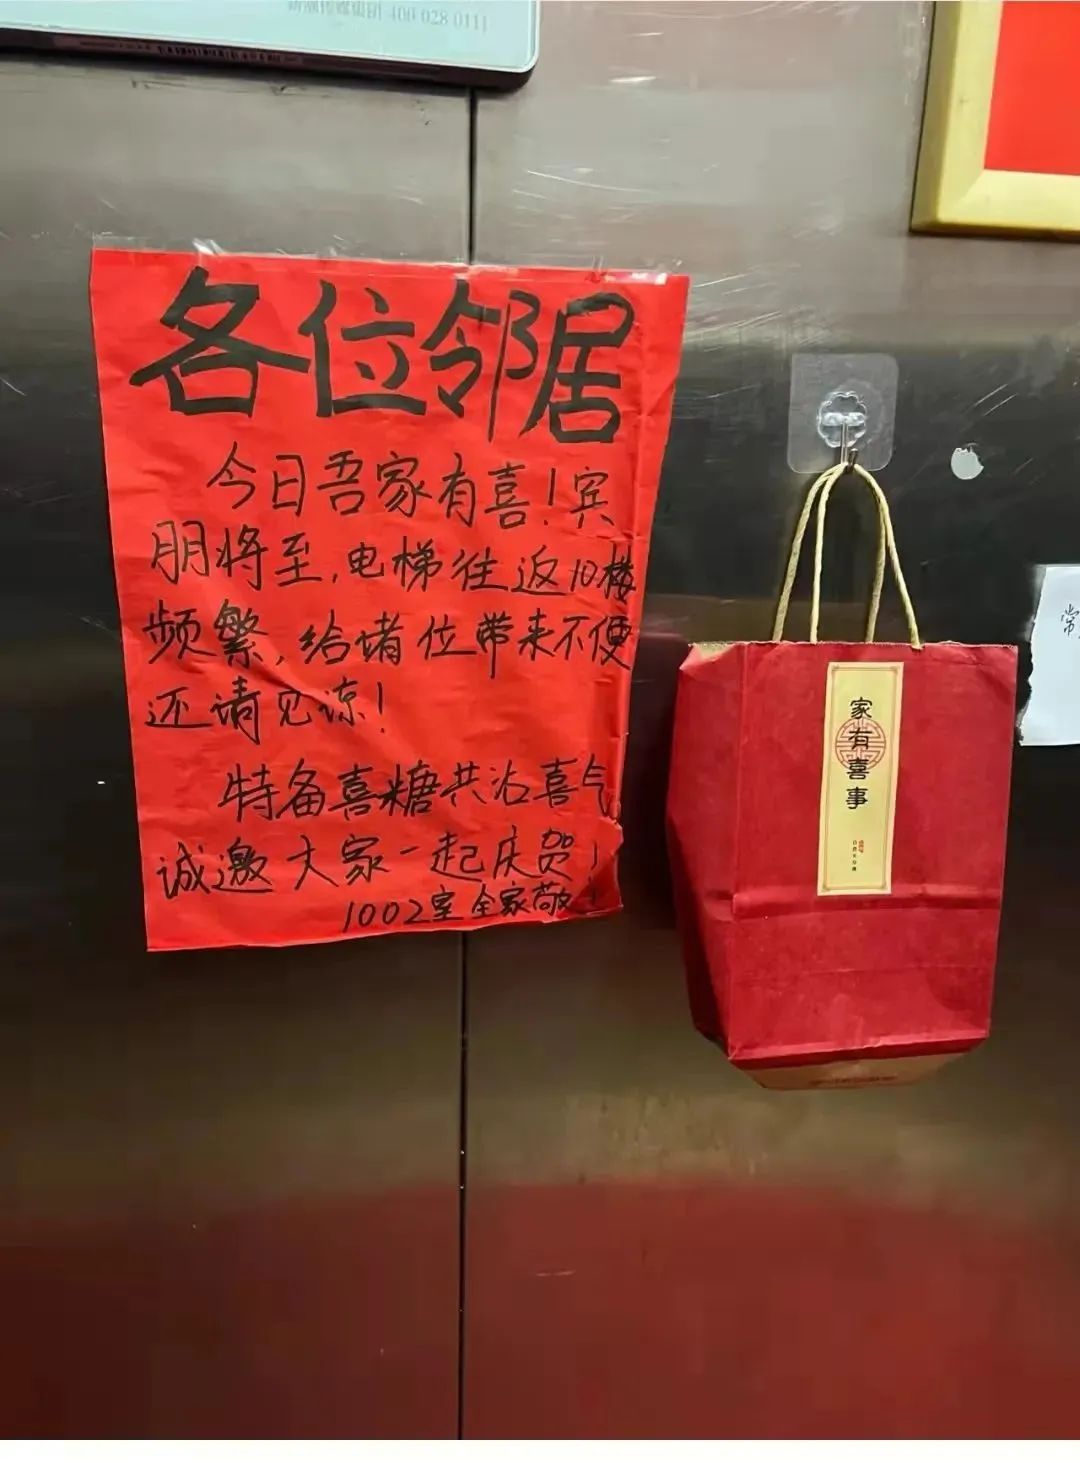 400 028 0111
各位邻居
今日吾家有喜！宾
朋将至，电梯往返10楼
频繁，给诸位带来不便
还请见谅！
特备喜糖共沾喜气
诚邀大家一起庆贺！
1002室全家敬上
家有喜事
常